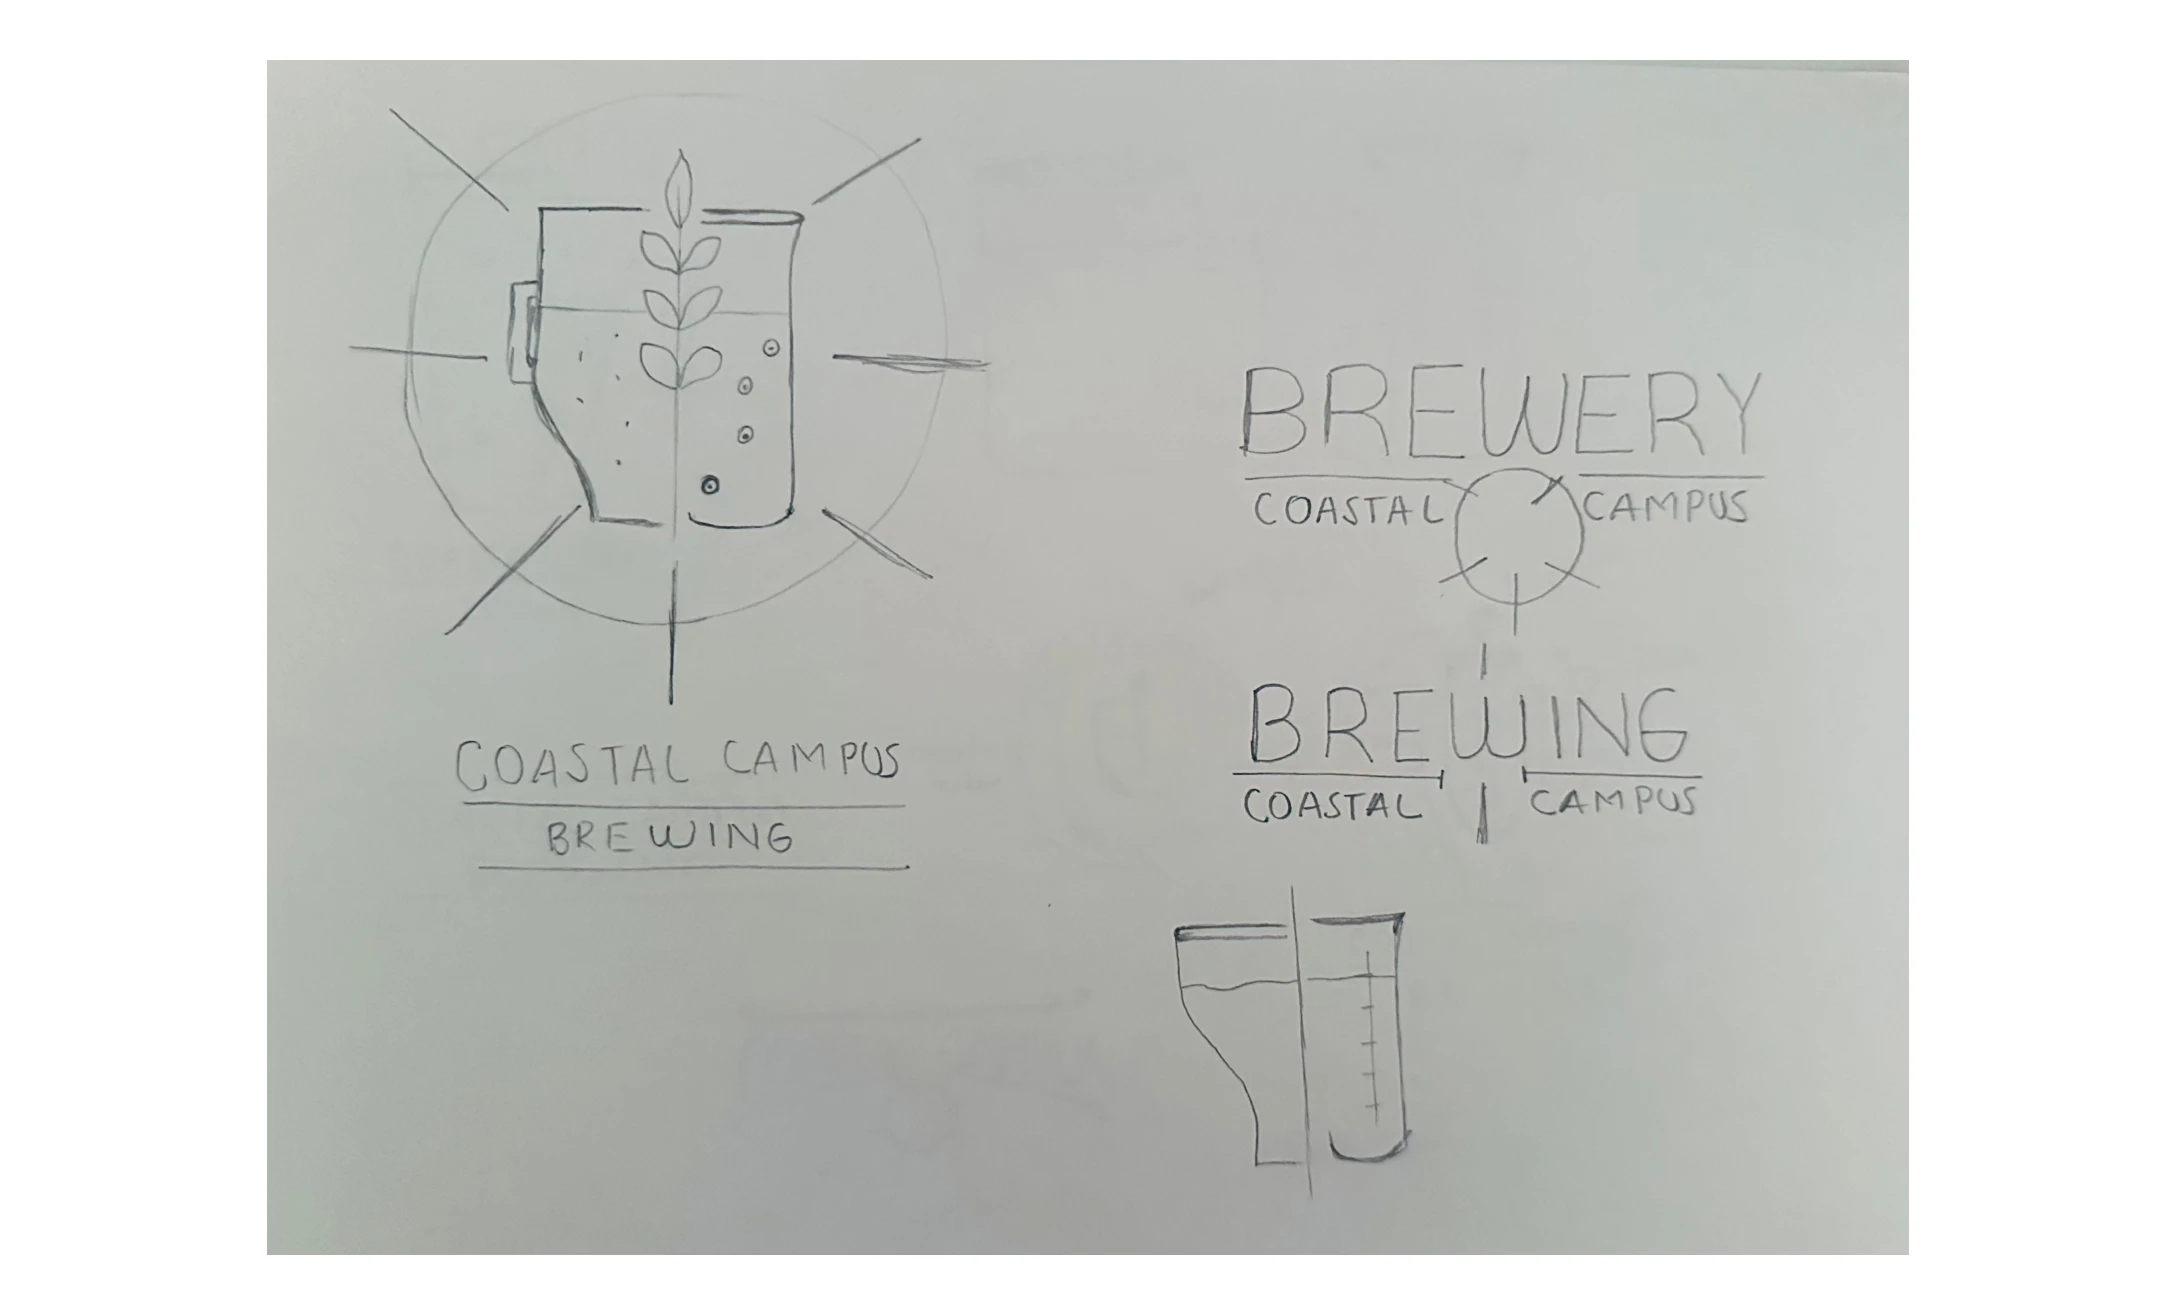 COASTAL CAMPUS
BREWING
BREWERY
COASTAL CAMPUS
BREWING
COASTAL CAMPUS